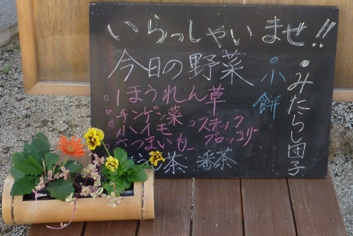 いらっしゃいませ!!
今日の野菜
・ほうれん草
・チンゲン菜
・小イモ
・さつまいも
・スティック
ブロッコリー
茶 番茶
小餅
・みたらし団子